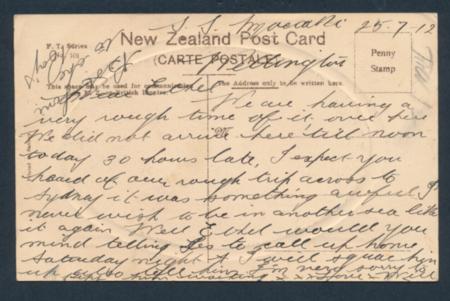 S.S. Moeraki 25-7-12
F. T. Series
No. 
New Zealand Post Card
(CARTE POSTALE)
Wellington
Penny
Stamp
This space may be used for communication
The Address only to be written here.
We are having a
very rough time of it over here
We did not arrive here till noon
today 30 hours late, I expect you
heard of our rough trip across to
Sydney it was something awful I
never wish to be in another sea like
it again Well Ethel would you
mind telling Les to call up home
Saturday night & I will
up & tell him I'm very sorry to